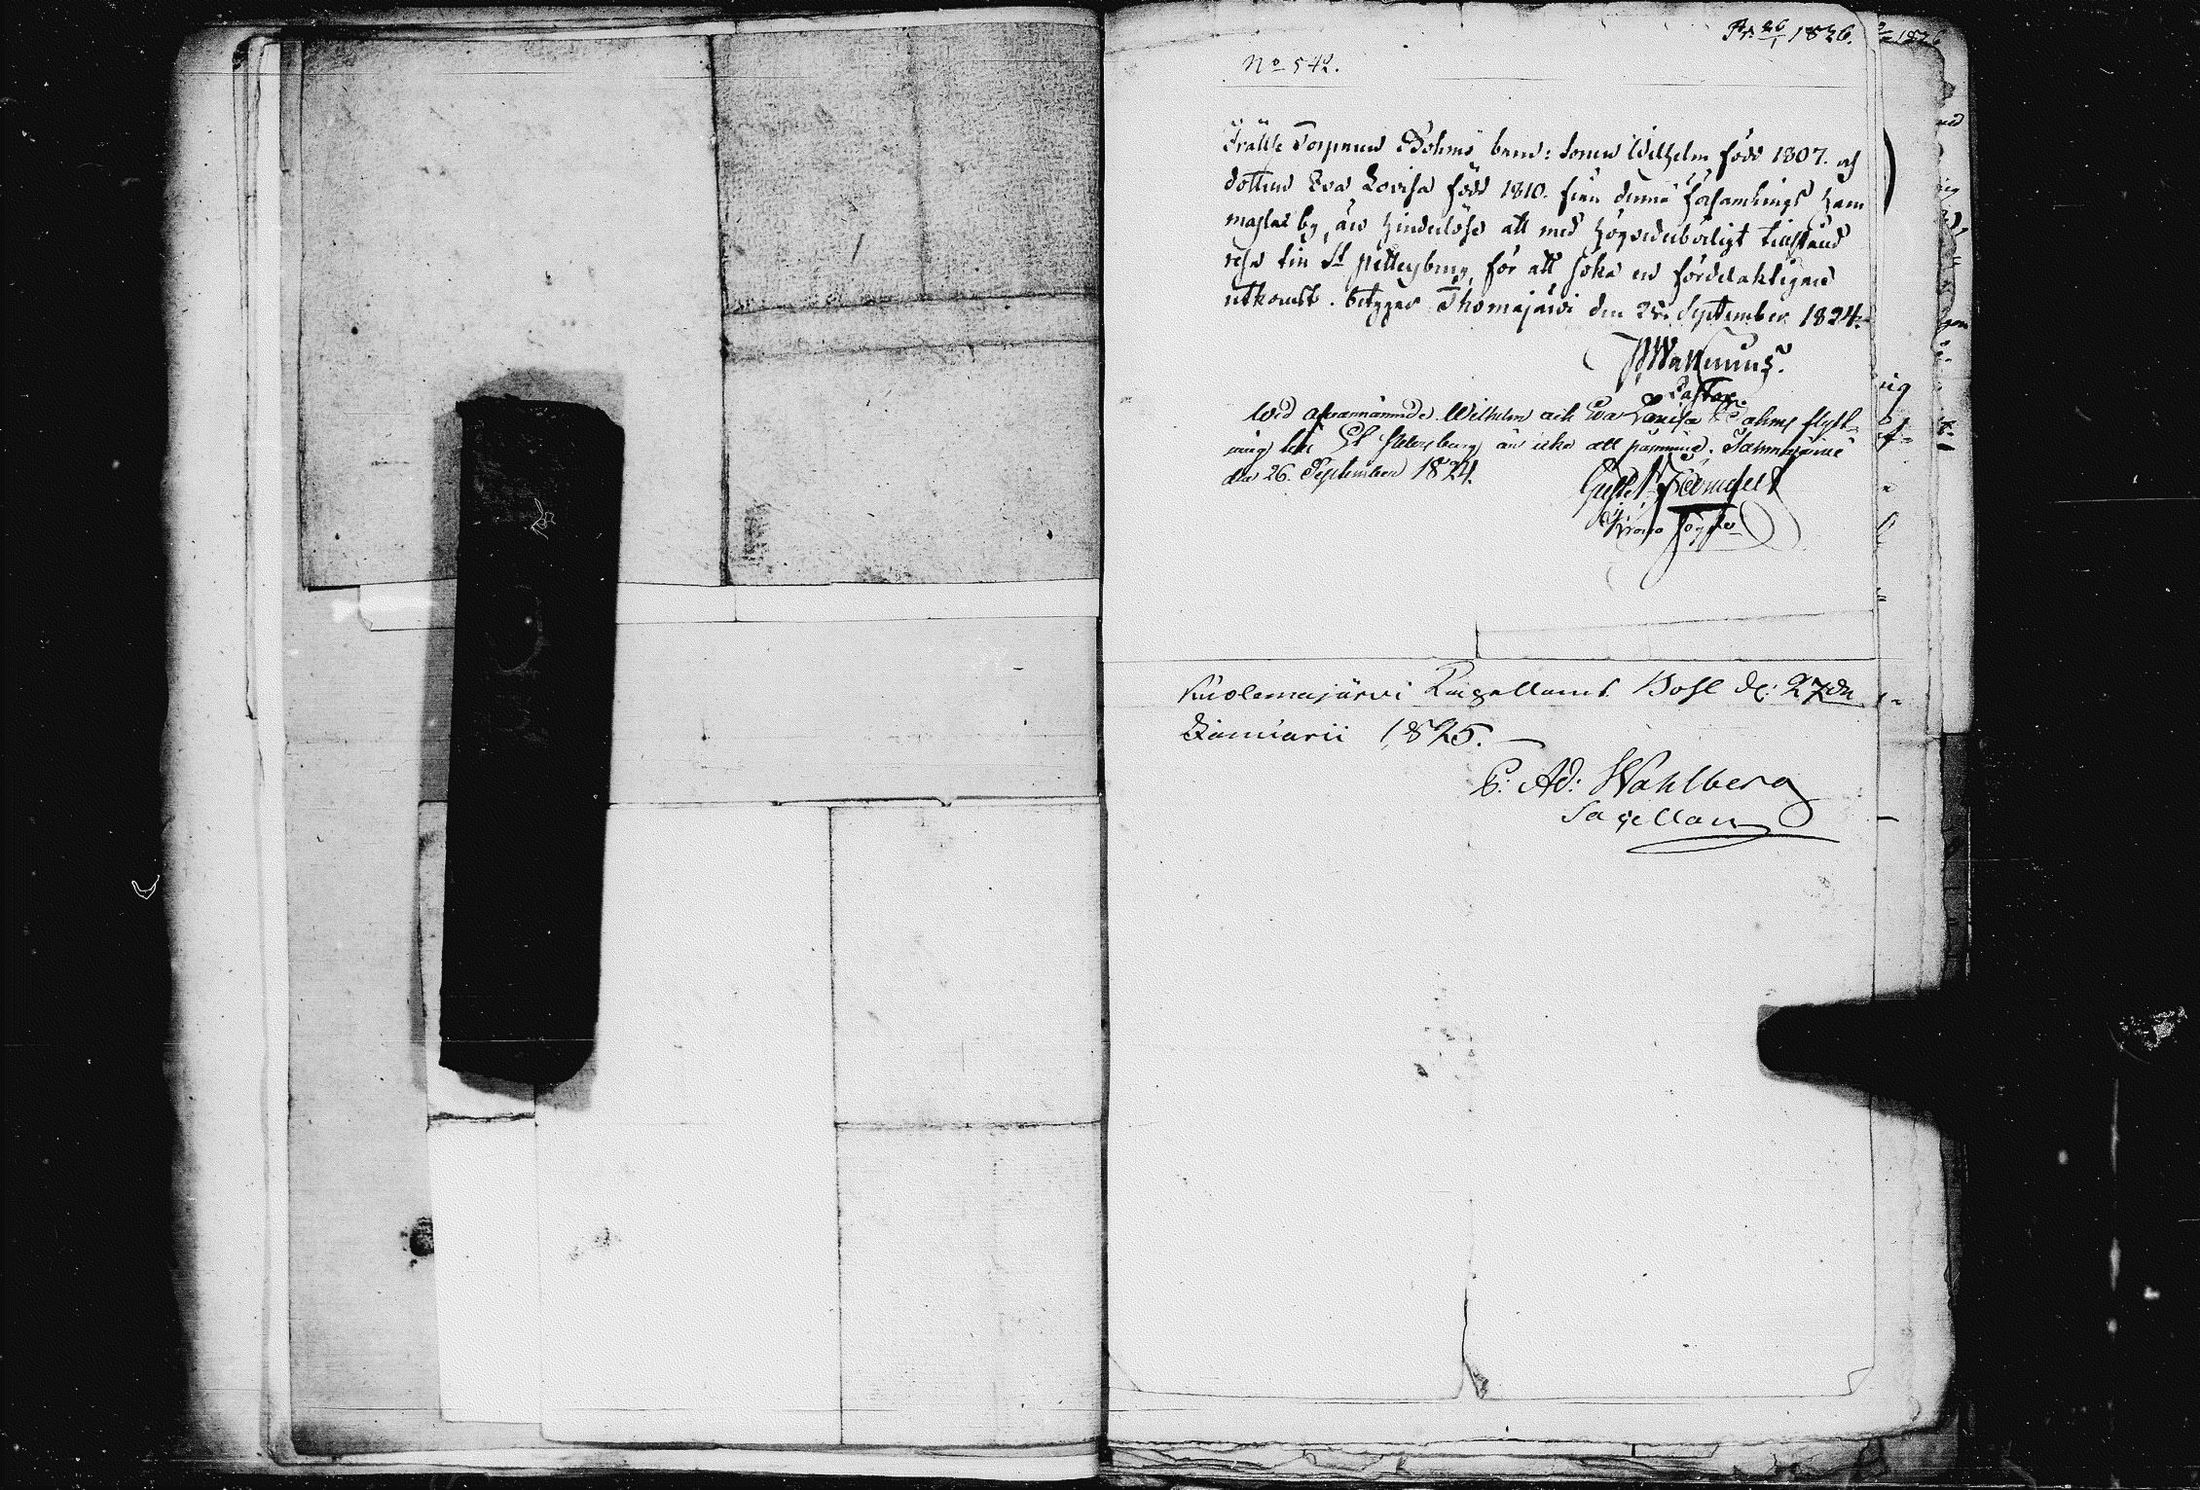 Pr: 26/1 1826.
No 542.
Frälse Torparen Bohms barn: Sonen Wilhelm född 1807. och
dottren Eva Lovisa född 1810. från denna församlings Kam
maslax by, äro hinderlöse att med högvederbörligt tillstånd
resa till St Pettersburg, för att söka en fördelaktigare
utkomst. betygar Thomajärvi den 25 September 1824.
Pastor.
Wid ofvannämnde Wilhelm och Eva Lovisa Bohms flytt-
ning till St Petersburg är icke att påminna,
den 26. September 1824.
Gust.
Krono Fogde
Kuolemajärvi Capellans Bohl d: 27de
Januarii 1825.
C: Ad: Wahlberg
Capellan